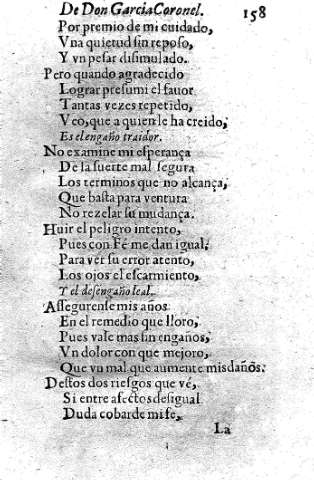 De Don Garcia Coronel. 158
Por premio de mi cuidado,
Vna quietud sin reposo,
Y vn pesar disimulado.
Pero quando agradecido
Lograr presumi el fauor
Tantas vezes repetido,
Veo, que a quien le ha creido,
Es el engaño traidor.
No examine mi esperança
De la suerte mal segura
Los terminos que no alcança,
Que basta para ventura
No rezelar su mudança.
Huir el peligro intento,
Pues con Fé me dan igual,
Para ver su error atento,
Los ojos el escarmiento,
Y el desengaño leal.
Assegurense mis años
En el remedio que lloro,
Pues vale mas sin engaños,
Vn dolor con que mejoro,
Que vn mal que aumente mis daños.
Destos dos riesgos que vé,
Si entre afectos desigual
Duda cobarde mi fe,
La